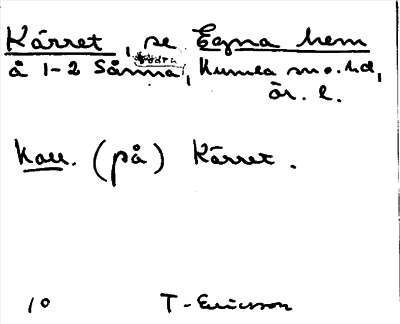 Kärret, se Egna hem
å 1-2 Sånna, Kumla sn o. hd,
ör. l.
Kall. (på) Kärret.
10 T- Ericsson